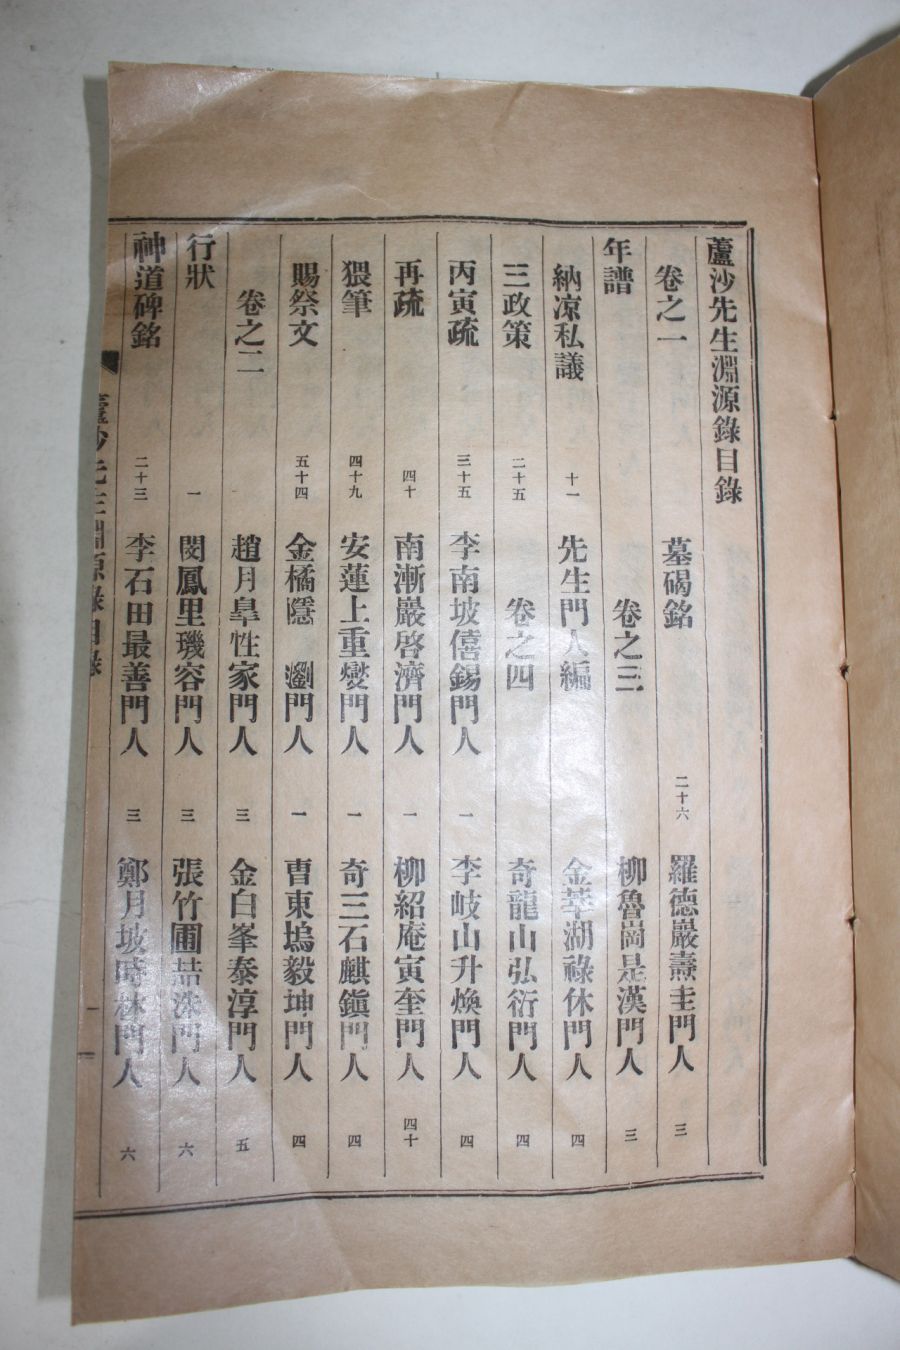 蘆沙先生淵源錄目錄
卷之一 墓碣銘 二十六 羅德巖燾圭門人 三
年譜 卷之三 柳魯崗是漢門人 三
納凉私議 十一 先生門人編 金莘湖祿休門人 四
三政策 二十五 卷之四 奇龍山弘衍門人 四
丙寅疏 三十五 李南坡僖錫門人 一 李岐山升煥門人 四
再疏 四十 南漸巖啓濟門人 一 柳紹庵寅奎門人 四十
猥筆 四十九 安蓮上重燮門人 一 奇三石麒鎭門人 四
賜祭文 五十四 金橘隱瀏門人 一 曺東塢毅坤門人 四
卷之二 趙月皐性家門人 三 金白峯泰淳門人 五
行狀 一 閔鳳里璣容門人 三 張竹圃喆洙門人 六
神道碑銘 二十三 李石田最善門人 三 鄭月坡時林門人 六
蘆沙先生淵源錄目錄 一